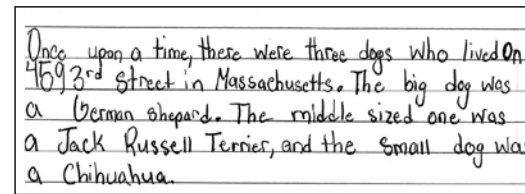 Once upon a time, there were three dogs who lived On
459 3rd Street in Massachusetts. The big dog was
a German shepard. The middle sized one was
a Jack Russell Terrier, and the small dog was
a Chihuahua.